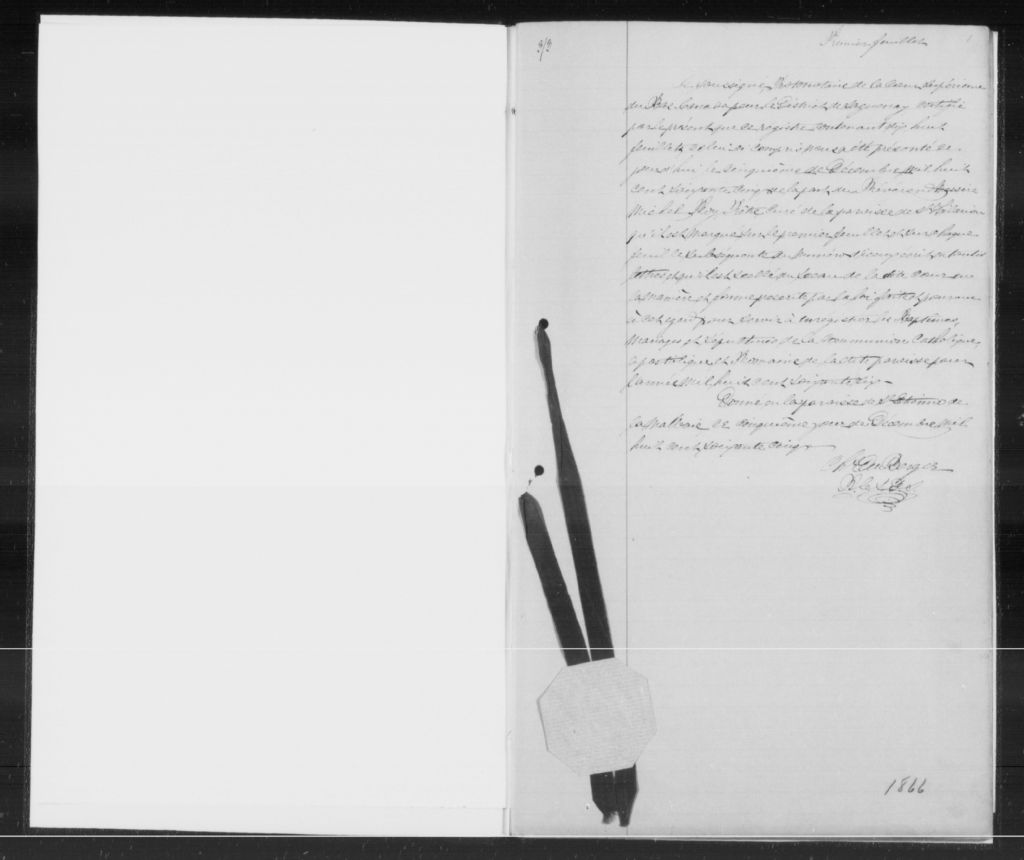 3/3
Premier feuillet
1
Le soussigné, Protonotaire de la Cour Supérieure
du Bas Canada pour le District de Saguenay certifie
par le présent que ce registre contenant dix huit
feuillets celui ci compris nous a été présenté ce
jourd'hui le cinquième de Décembre Mil huit
cent soixante cinq de la part du Révérend Messire
Michel Roy Prêtre Curé de la paroisse de St Hilarion
qu'il est marqué sur le premier feuillet et sur chaque
feuillet subséquent du numéro écrit en toutes
lettres et qu'il est scellé du sceau de la dite Cour en
la manière et forme prescrite par la loi faite et pourvue
à cet égard pour servir à enregistrer les Baptêmes,
Mariages et Sépultures de la Communion Catholique,
Apostolique et Romaine de la dite paroisse pour
l'année Mil huit cent soixante six.
Donné en la paroisse de St Etienne de
la Malbaie ce cinquième jour de Décembre Mil
huit cent soixante cinq
Du Berger
1866